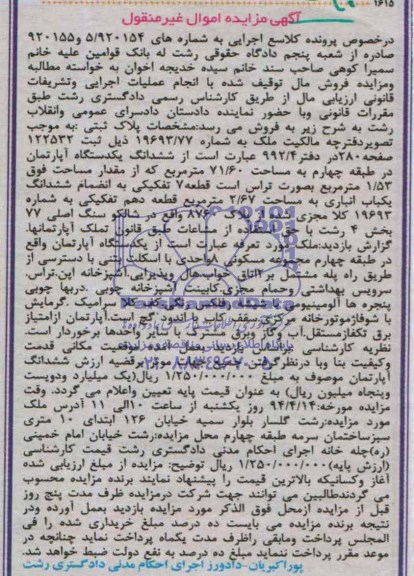 ۱۶۱۵
آگهی مزایده اموال غیرمنقول
درخصوص پرونده کلاسه اجرایی به شماره های ۵/۹۲۰۱۵۴ و۹۲۰۱۵۵
صادره از شعبه پنجم دادگاه حقوقی رشت له بانک قوامین علیه خانم
سمیرا کوهی صاحب سند خانم سیده خدیجه اخوان به خواسته مطالبه
ومزایده فروش مال توقیف شده با انجام عملیات اجرایی وتشریفات
قانونی ارزیابی مال از طریق کارشناس رسمی دادگستری رشت طبق
مقررات قانونی وبا حضور نماینده دادستان دادسرای عمومی وانقلاب
رشت به شرح زیر به فروش می رسد:مشخصات پلاک ثبتی :به موجب
تصویردفترچه مالکیت ملک به شماره ۱۹۶۹۳/۷۷ ذیل ثبت ۱۲۲۵۳۲
صفحه۲۸۰در دفتر۹۹۲/۴ عبارت است از ششدانگ یکدستگاه آپارتمان
در طبقه چهارم به مساحت ۷۱/۶۰ مترمربع که از مقدار مساحت فوق
۱/۵۳ مترمربع بصورت تراس است قطعه۷ تفکیکی به انضمام ششدانگ
یکباب انباری به مساحت ۲/۶۷ مترمربع قطعه دهم تفکیکی به شماره
۱۹۶۹۳ کلا مجزی شده از پلاک ۸۷۶۰ واقع در شالکو سنگ اصلی ۷۷
بخش ۴ رشت با حق استفاده از مشاعات طبق قانون تملک آپارتمانها.
گزارش بازدید:ملک مورد تعرفه عبارت است از یکدستگاه آپارتمان واقع
در طبقه چهارم مجموعه مسکونی ۸واحدی با اسکلت بتنی با دسترسی از
طریق راه پله مشتمل بر۲اتاق خواب،هال وپذیرایی.آشپزخانه اپن.تراس.
سرویس بهداشتی وحمام مجزی.کابینت آشپزخانه چوبی .دربها چوبی
پنجره ها آلومینیومی با شیشه رفلکس رنگی کف کلا سرامیک .گرمایش
با شوفاژموتورخانه مرکزی.سقف کاذب با اندود گچ است.آپارتمان ازامتیاز
برق تکفازمستقل.آب وگاز وبرق مشترک با سایر واحدها برخوردار است.
نظریه کارشناسی :براساس بازدید بعمل آمده موقعیت مکانی قدمت
وکیفیت بنا وبا درنظرگرفتن جمیع جهات موثر برقضیه ارزش ششدانگ
آپارتمان موصوف به مبلغ ۱/۲۵۰/۰۰۰/۰۰۰ ریال(یک میلیارد ودویست
وپنجاه میلیون ریال) به عنوان قیمت پایه تعیین واعلام می گردد. وقت
مزایده مورخه:۹۴/۴/۱۴ روز یکشنبه از ساعت ۱۰الی ۱۱ آدرس ملک
مورد مزایده:رشت گلسار بلوار سمیه خیابان ۱۲۶ ابتدای ۱۰ متری
سبزساختمان سرمه طبقه چهارم محل مزایده:رشت خیابان امام خمینی
(ره)جله خانه اجرای احکام مدنی دادگستری رشت قیمت کارشناسی
(ارزش پایه)۱/۲۵۰/۰۰۰/۰۰۰ ریال توضیح: مزایده از مبلغ ارزیابی شده
آغاز وکسانیکه بالاترین قیمت را پیشنهاد نمایند برنده مزایده محسوب
می گردندطالبین می توانند جهت شرکت درمزایده ظرف مدت پنج روز
قبل از مزایده ازمحل فوق الذکر مورد مزایده بازدید بعمل آورده ودر
نتیجه برنده مزایده می بایست ده درصد مبلغ خریداری شده را فی
المجلس پرداخت ومابقی راظرف مدت یکماه پرداخت نماید چنانچه در
موعد مقرر پرداخت ننماید مبلغ ده درصد به نفع دولت ضبط خواهد شد.
پوراکبریان-دادورز اجرای احکام مدنی دادگستری رشت